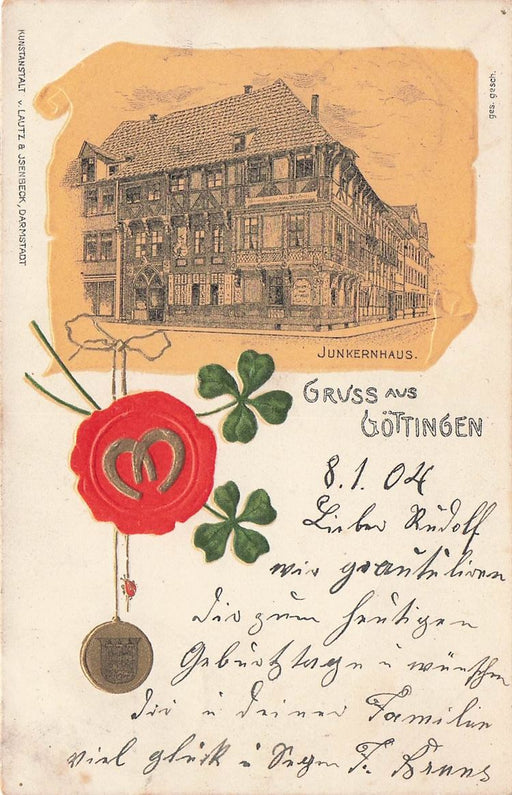 KUNSTANSTALT v. LAUTZ & JSENBECK, DARMSTADT
ges. gesch.
JUNKERNHAUS.
GRUSS AUS
GÖTTINGEN
8.1.04
Lieber Rudolf
wir gratuliren
dir zum heutigen
Geburtstage u wünschen
dir u deiner Familie
viel glück u Segen